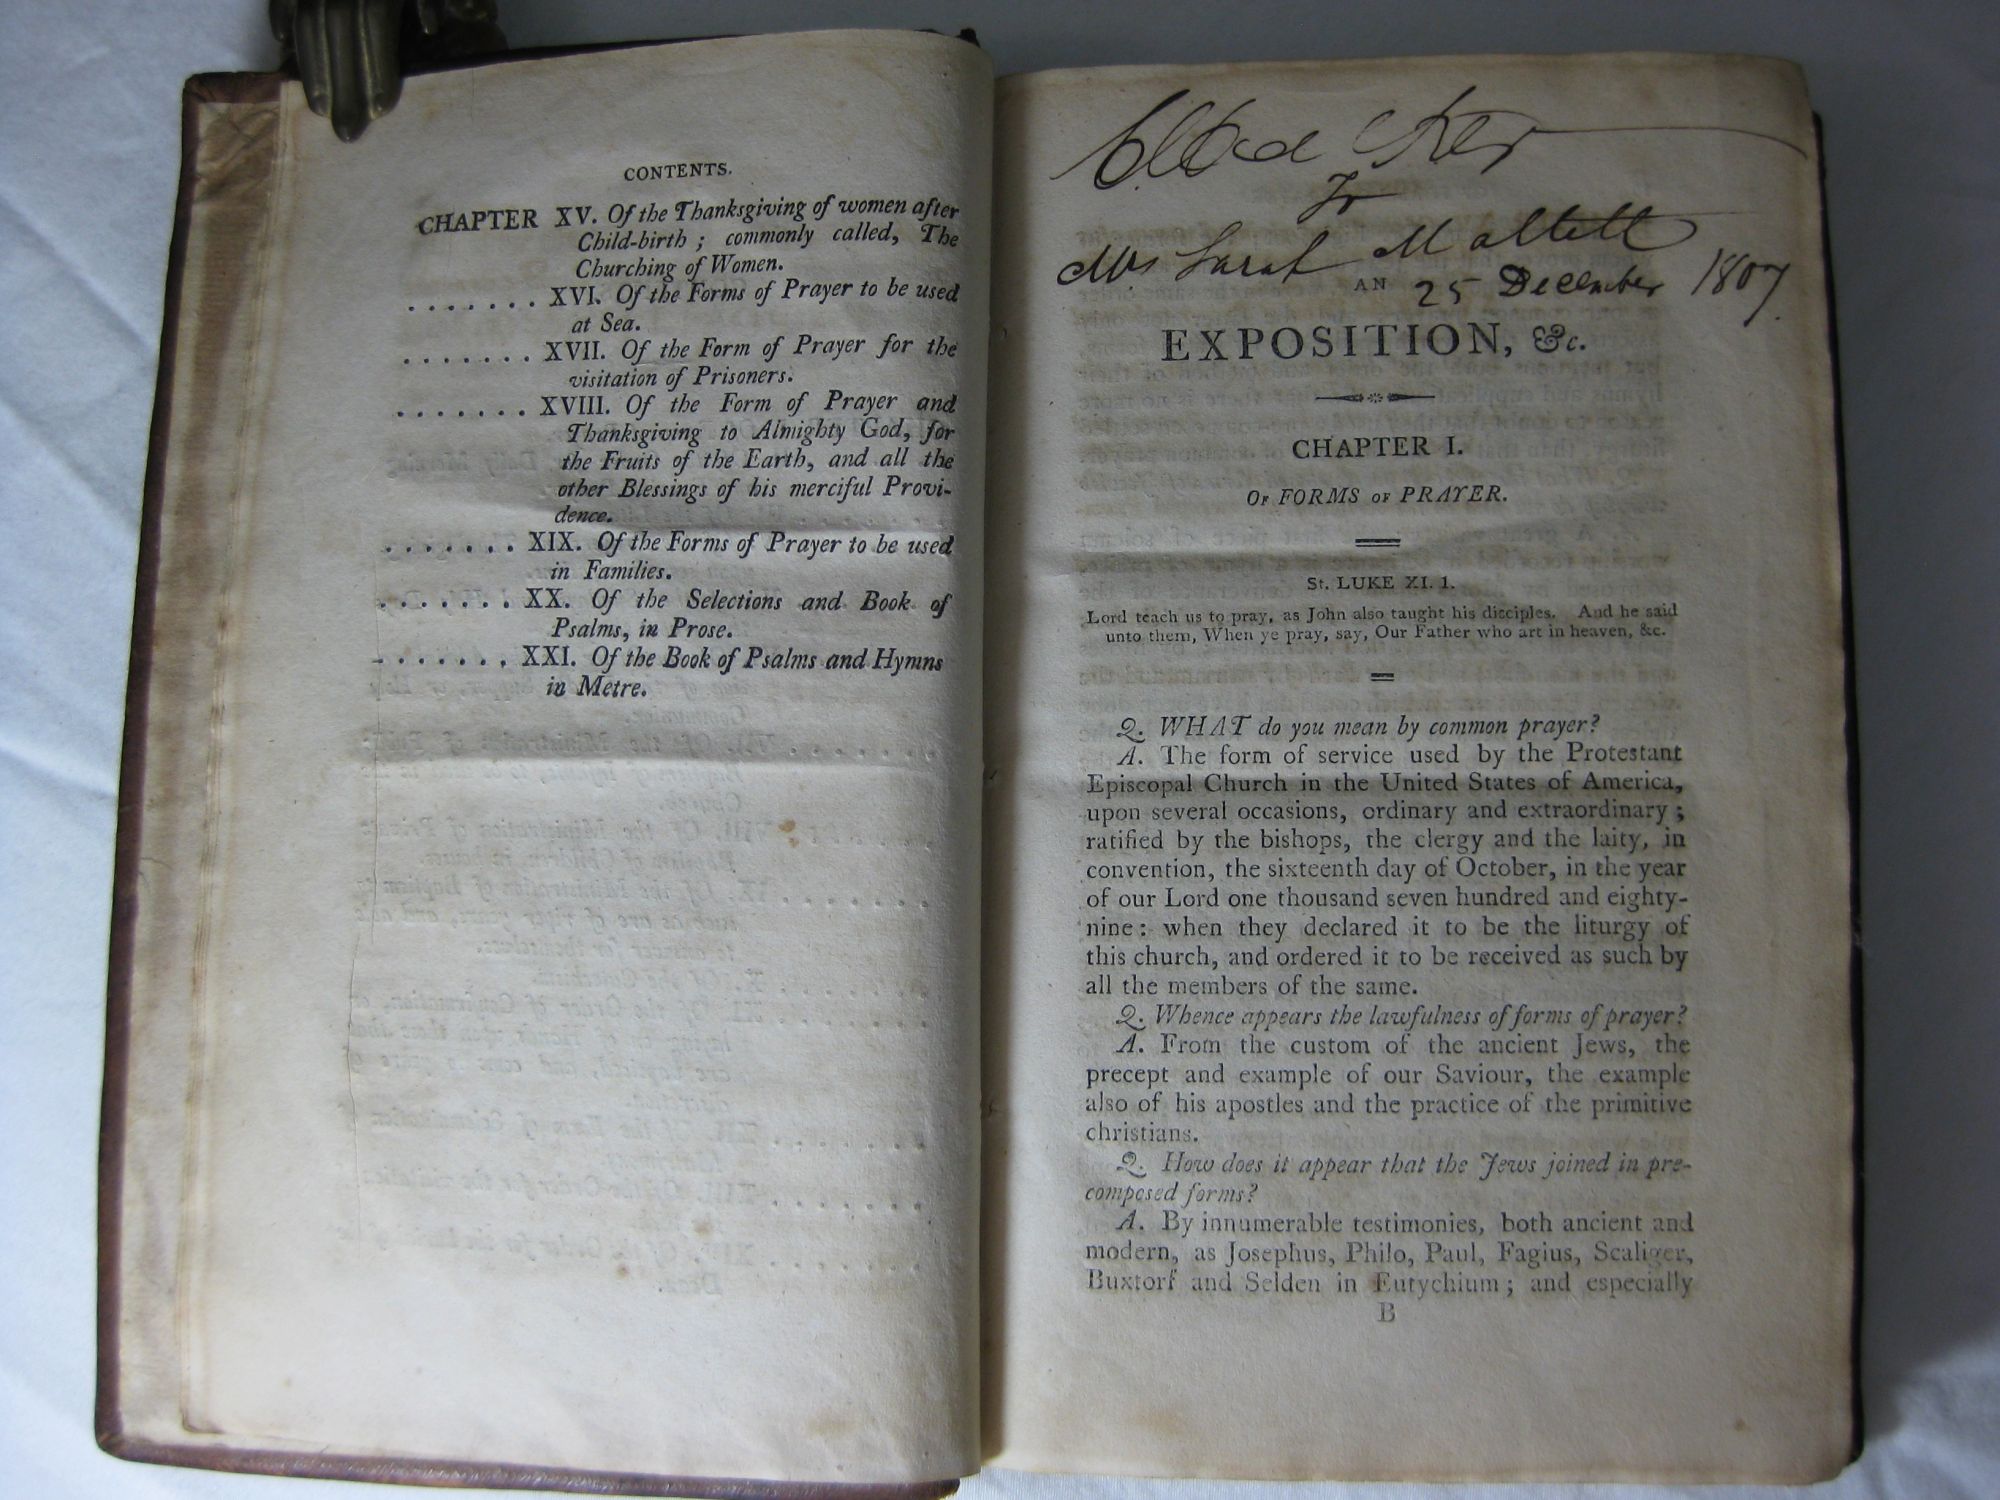 CONTENTS.
CHAPTER XV. Of the Thanksgiving of women after
Child-birth ; commonly called, The
Churching of Women.
. . . . . . . XVI. Of the Forms of Prayer to be used
at Sea.
. . . . . . . XVII. Of the Form of Prayer for the
visitation of Prisoners.
. . . . . . . XVIII. Of the Form of Prayer and
Thanksgiving to Almighty God, for
the Fruits of the Earth, and all the
other Blessings of his merciful Provi-
dence.
. . . . . . . XIX. Of the Forms of Prayer to be used
in Families.
. . . . . . . XX. Of the Selections and Book of
Psalms, in Prose.
. . . . . . . XXI. Of the Book of Psalms and Hymns
in Metre.
Mrs Sarah
25 December 1807
AN
EXPOSITION, &c.
CHAPTER I.
OF FORMS OF PRAYER.
St. LUKE XI. 1.
Lord teach us to pray, as John also taught his disciples. And he said
unto them, When ye pray, say, Our Father who art in heaven, &c.
Q. WHAT do you mean by common prayer?
A. The form of service used by the Protestant
Episcopal Church in the United States of America,
upon several occasions, ordinary and extraordinary ;
ratified by the bishops, the clergy and the laity, in
convention, the sixteenth day of October, in the year
of our Lord one thousand seven hundred and eighty-
nine : when they declared it to be the liturgy of
this church, and ordered it to be received as such by
all the members of the same.
Q. Whence appears the lawfulness of forms of prayer?
A. From the custom of the ancient Jews, the
precept and example of our Saviour, the example
also of his apostles and the practice of the primitive
christians.
Q. How does it appear that the Jews joined in pre-
composed forms?
A. By innumerable testimonies, both ancient and
modern, as Josephus, Philo, Paul, Fagius, Scaliger,
Buxtorf and Selden in Eutychium ; and especially
B